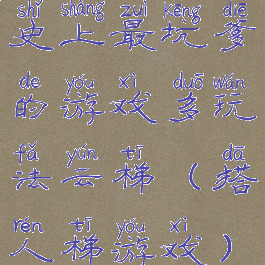 shǐ shàng zuì kēng diē
史上最坑爹
de yóu xì duō wán
的游戏多玩
fǎ yún tī dā
法云梯（搭
rén tī yóu xì
人梯游戏）